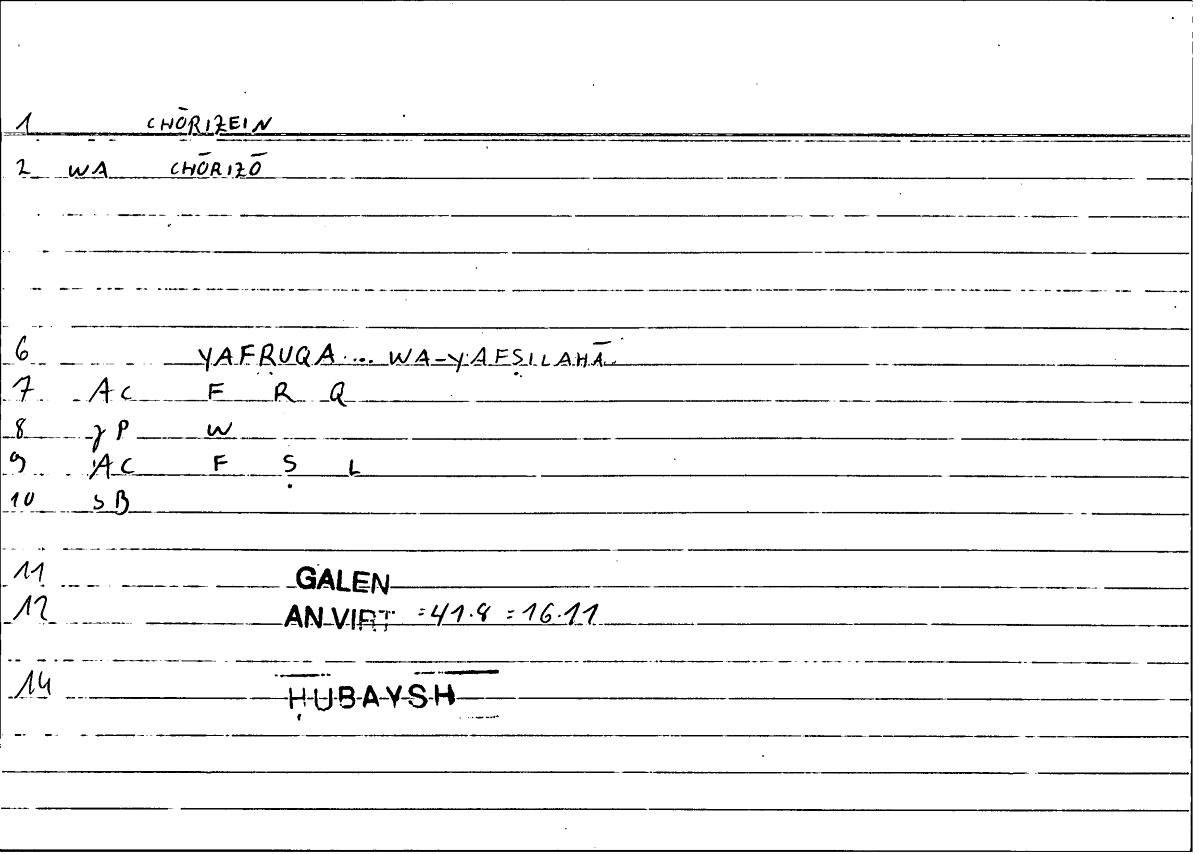 1 CHŌRIZEIN
2 WA CHŌRIZŌ
6 YAFRUQA... WA-YAFṢILAHĀ
7 AC F R Q
8 γP W
9 AC F Ṣ L
10 SB
11 GALEN
12 AN VIRT =41.8 =16.11
14 ḤUBAYSH